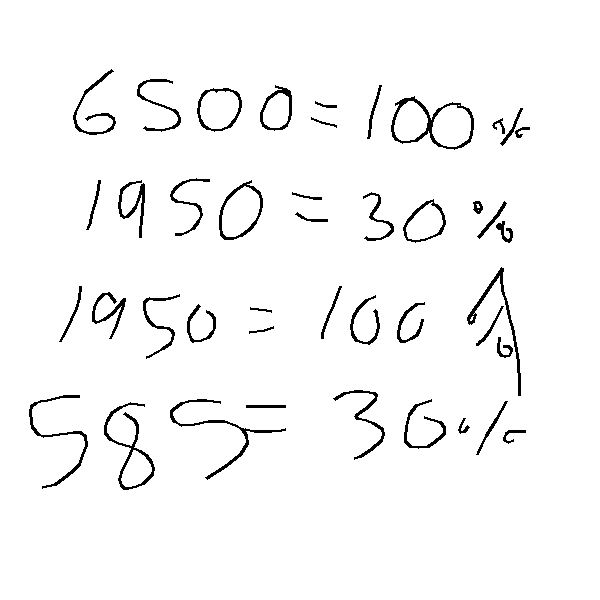 6500 = 100 %
1950 = 30 %
1950 = 100 %
585 = 30 %